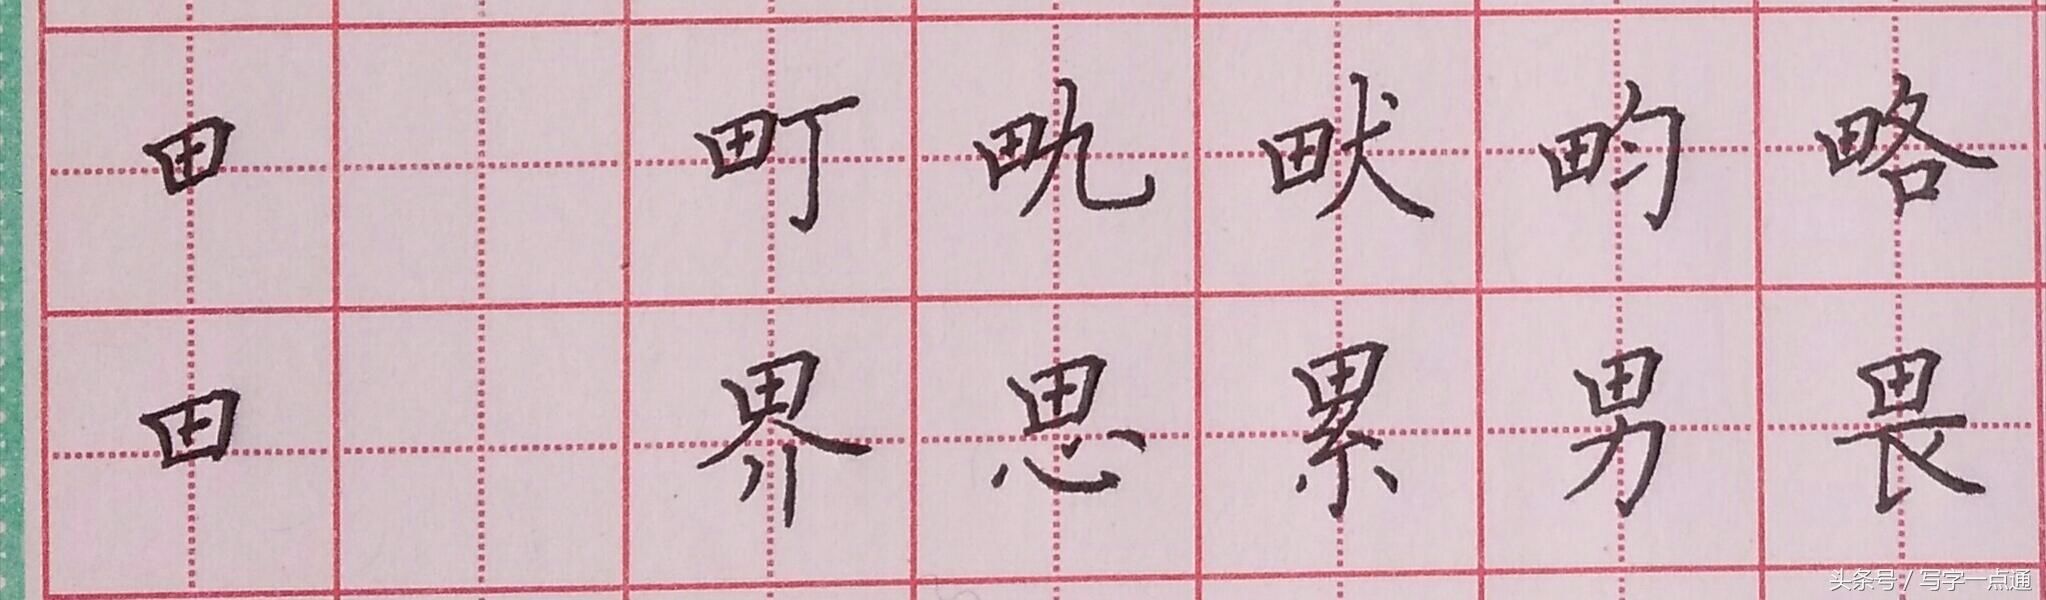 田 町 畂 畎 畇 略
田 界 思 累 男 畏
头条号 / 写字一点通